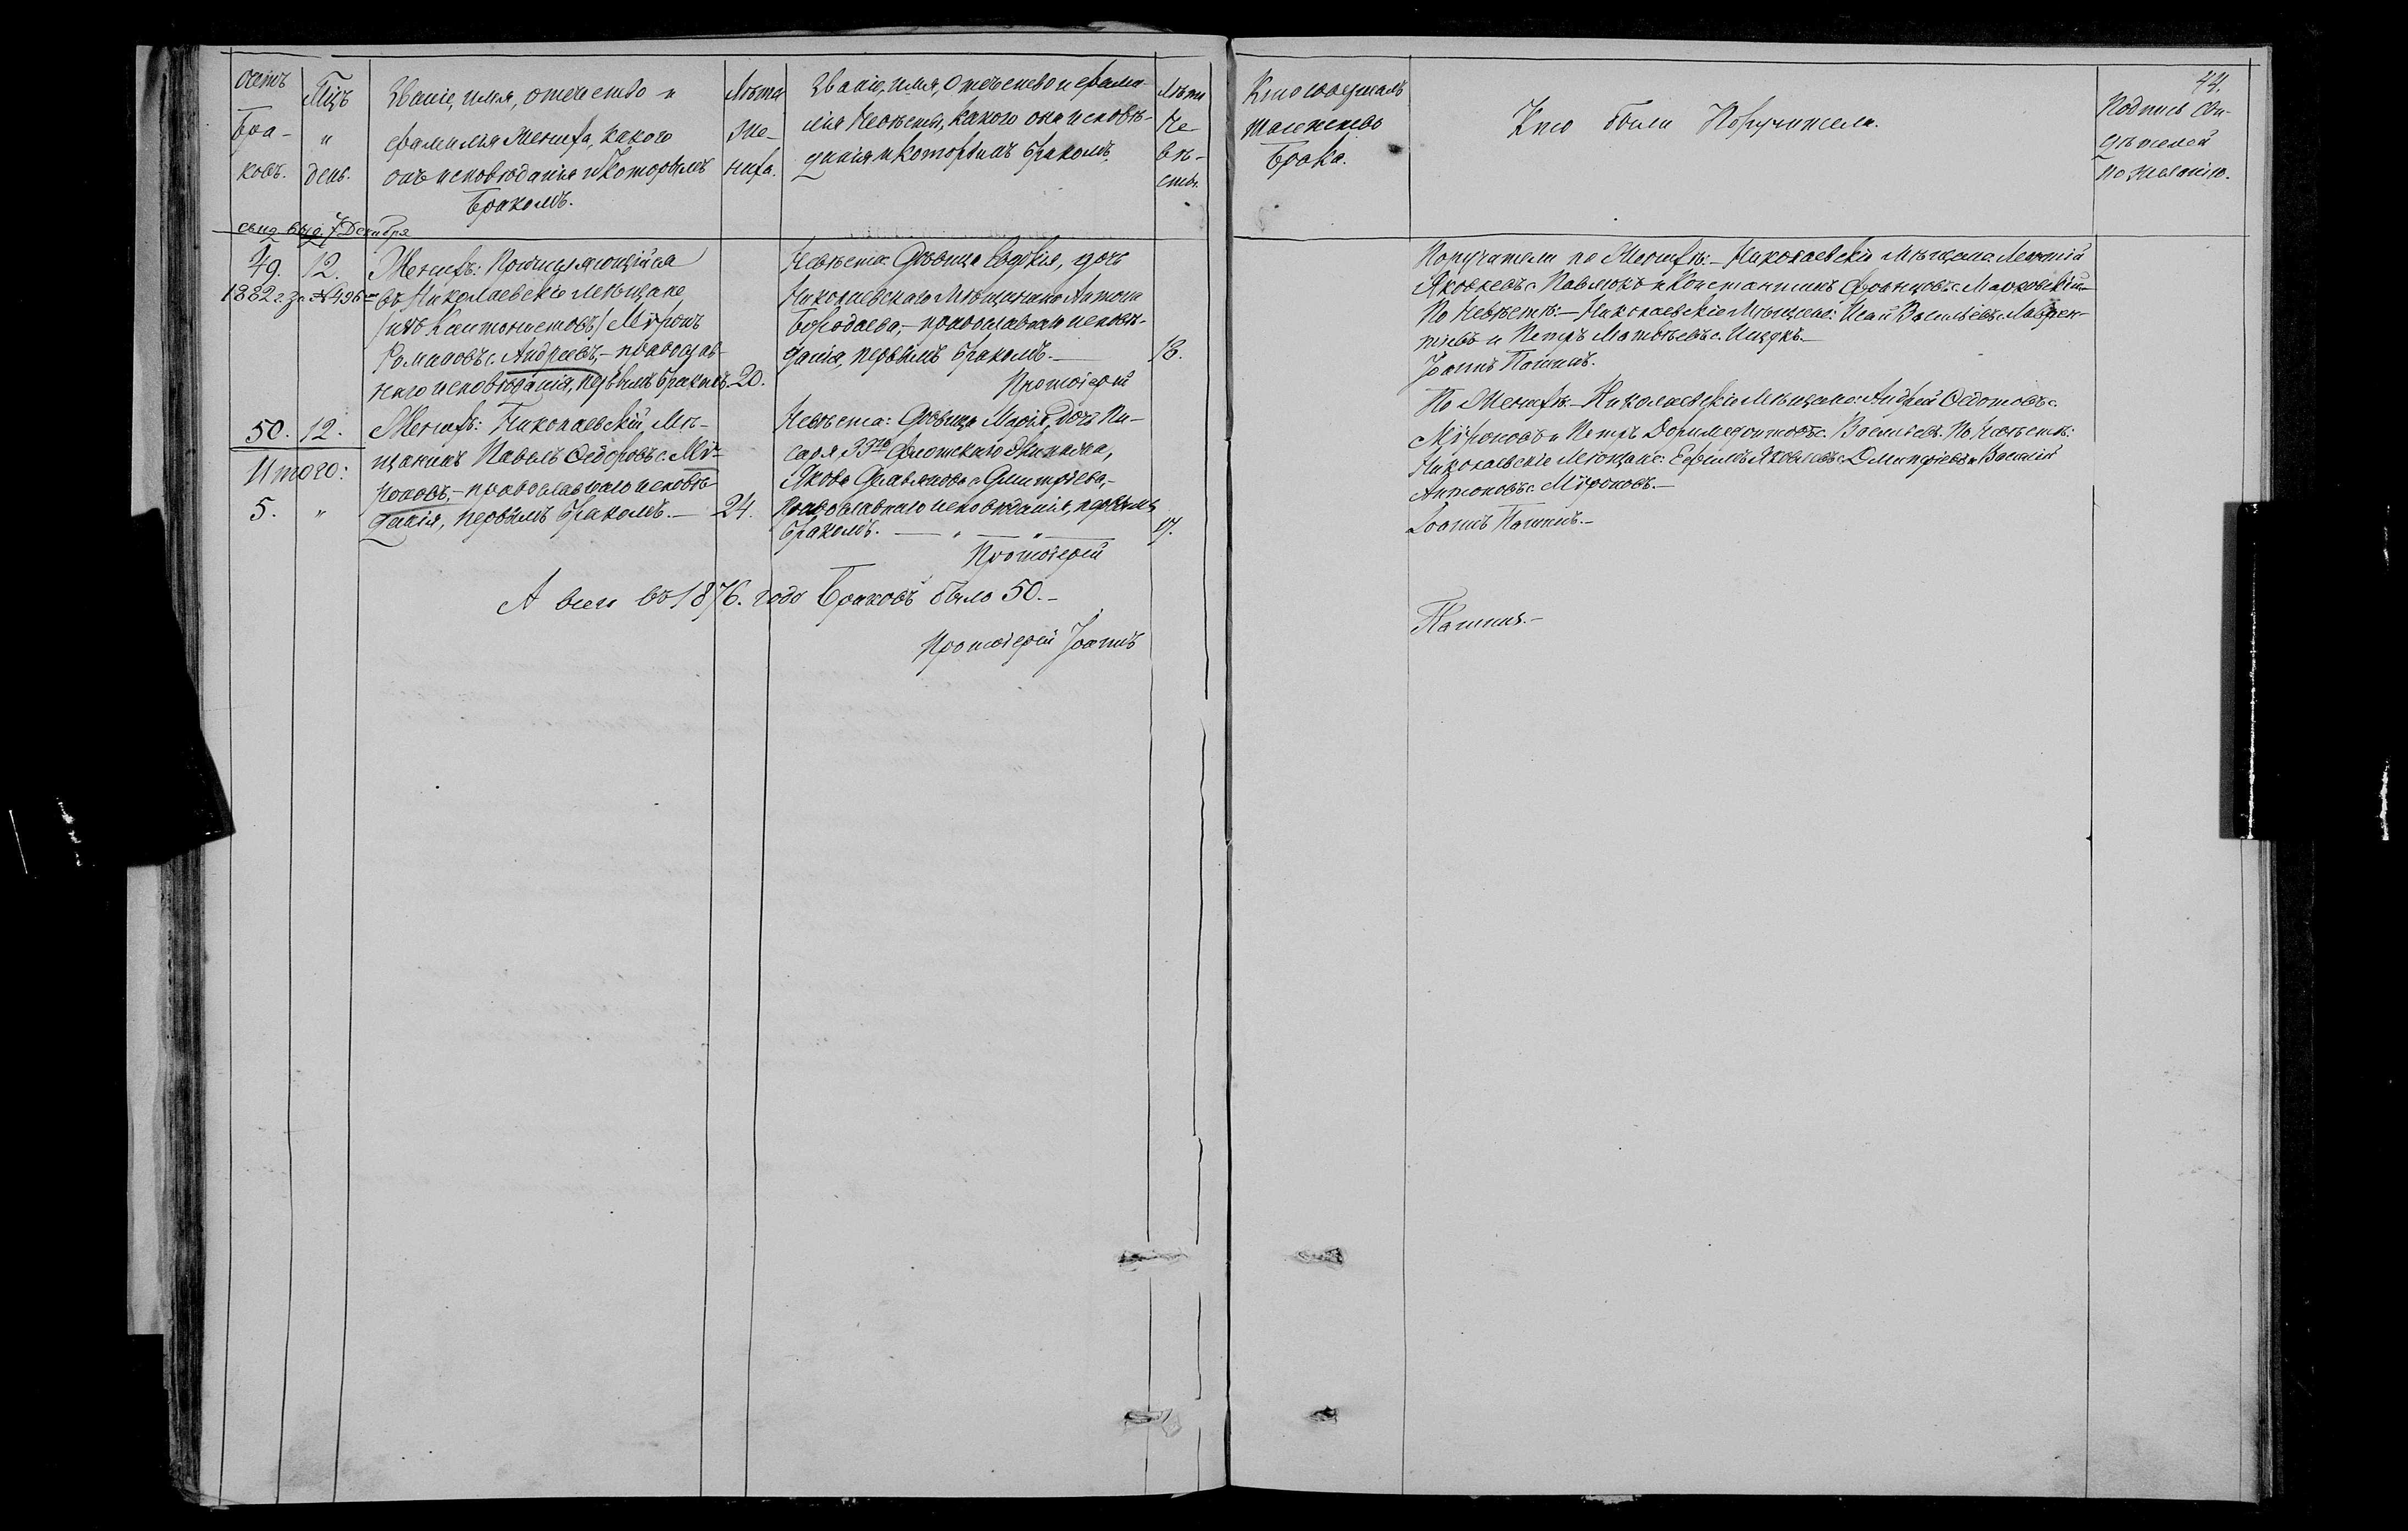 44.
Счетъ браковъ.
Мѣсяцъ и день.
Званіе, имя, отечество и
фамилія Жениха, какого
онъ исповѣданія и которымъ
бракомъ.
Лѣта Жениха.
Званіе, имя, отечество и фами-
лія Невѣсты, какого она исповѣ-
данія и которымъ бракомъ.
Лѣта Невѣсты.
Кто совершалъ
таинство
брака.
Кто были Поручители.
Подпись Сви-
дѣтелей
по желанію.
свид. выд. 7 Декабря
1882 г. за № 496
49.
12.
Женихъ: Причисляющійся
въ Николаевскіе мѣщане,
(изъ Кантонистовъ) Миронъ
Романовъ с. Андреевъ,- православ-
наго исповѣданія, первымъ бракомъ.-
20.
Невѣста: Дѣвица Евдокія, дочь
Николаевскаго Мѣщанина Антона
Бородаева,- православнаго исповѣ-
данія, первымъ бракомъ.-
18.
Протоіерей
Поручители по Женихѣ:- Николаевскіе мѣщане: Леонтій
Яковлевъ с. Павлюкъ и Константинъ Францовъ с. Марковскій.-
По Невѣстѣ:- Николаевскіе Мѣщане: Исай Васильевъ с. Лаврен-
тіевъ и Петръ Матвѣевъ с.
Іоаннъ Пашинъ.
50.
12.
Женихъ: Николаевскій Мѣ-
щанинъ Павелъ Ѳедоровъ с. Мѵ-
роновъ,- православнаго исповѣ-
данія, первымъ бракомъ.-
24.
Невѣста: Дѣвица Марія, дочь Пи-
саря 33го Флотскаго Экипажа,
Якова с. Дмитріева,-
Православнаго исповѣданія, первымъ
бракомъ.- " - " -
17.
Протоіерей
По Женихѣ.- Николаевскіе Мѣщане: Андрей Ѳедотовъ с.
Мѵроновъ и Петръ Доримедонтовъ с. Васильевъ. По Невѣстѣ:
Николаевскіе Мѣщане: Ефимъ Яковлевъ с. Дмитріевъ и Василій
Антоновъ с. Мѵроновъ.-
Іоаннъ Пашинъ.-
Итого:
5. "
А всего въ 1876. году браковъ было 50.-
Протоіерей Іоаннъ
Пашинъ.-